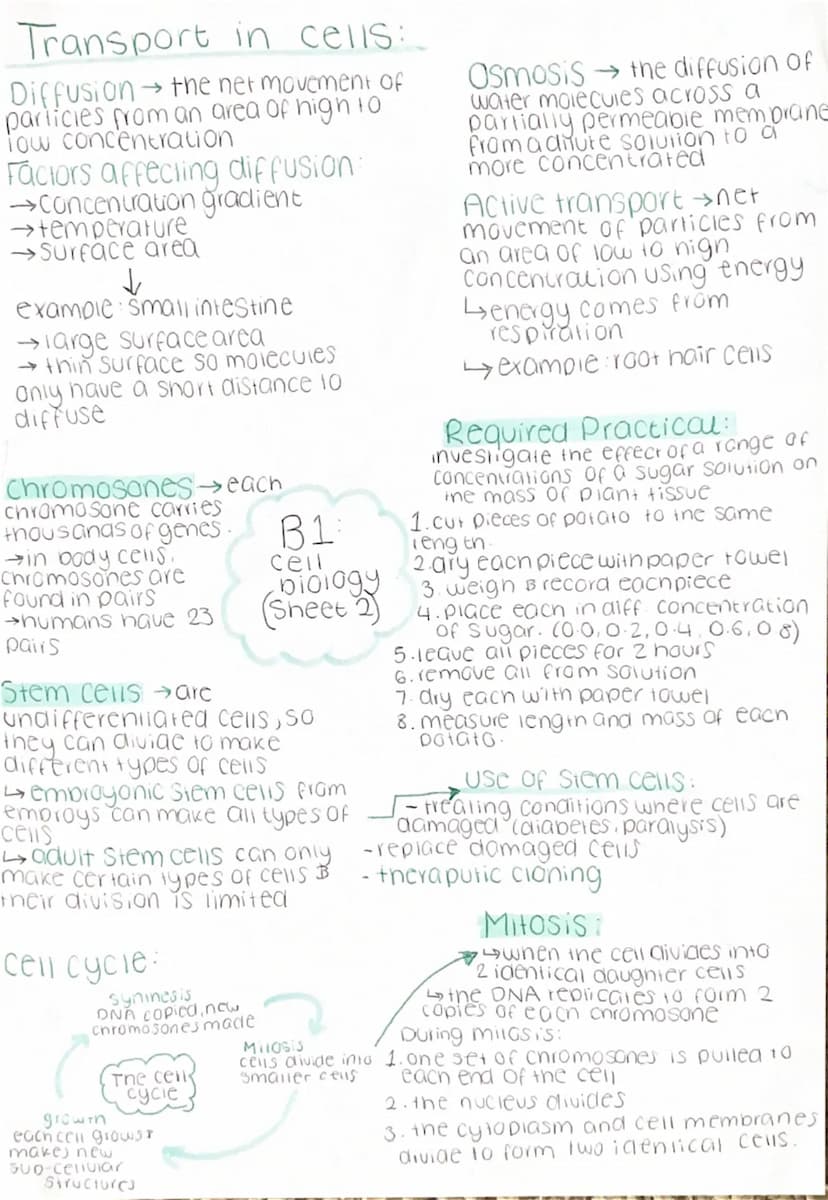 Transport in cells:
Diffusion → the net movement of
particles from an area of high to
low concentration
Factors affecting diffusion:
→concentration gradient
→temperature
→surface area
↓
example: small intestine
→large surface area
→ thin surface so molecules
only have a short distance to
diffuse
Osmosis → the diffusion of
water molecules across a
partially permeable membrane
from a dilute solution to a
more concentrated
Active transport →net
movement of particles from
an area of low to high
concentration using energy
↳energy comes from
respiration
↳example: root hair cells
Chromosones →each
chromosone carries
thousands of genes.
→in body cells,
chromosones are
found in pairs
→humans have 23
pairs
B1:
cell
biology
(Sheet 2)
Required Practical:
investigate the effect of a range of
concentrations of a sugar solution on
the mass of plant tissue
1. cut pieces of potato to the same
length.
2. dry each piece with paper towel
3. weigh & record each piece
4. place each in diff. concentration
of sugar. (0.0, 0.2, 0.4, 0.6, 0.8)
5. leave all pieces for 2 hours
6. remove all from solution
7. dry each with paper towel
8. measure length and mass of each
potato.
Stem cells →are
undifferentiated cells, so
they can divide to make
different types of cells
↳embroyonic stem cells from
embroys can make all types of
cells
↳adult stem cells can only
make certain types of cells &
their division is limited
use of stem cells:
- treating conditions where cells are
damaged (diabetes, paralysis)
-replace damaged cells
- theraputic cloning
cell cycle:
synthesis
DNA copied, new
chromosones made
Mitosis
cells divide into
smaller cells
The cell
cycle
growth
each cell grows &
makes new
sub-cellular
structures
Mitosis:
↳when the cell divides into
2 identical daughter cells
↳the DNA replicates to form 2
copies of each chromosone
During mitosis:
1. one set of chromosones is pulled to
each end of the cell
2. the nucleus divides
3. the cytoplasm and cell membranes
divide to form two identical cells.